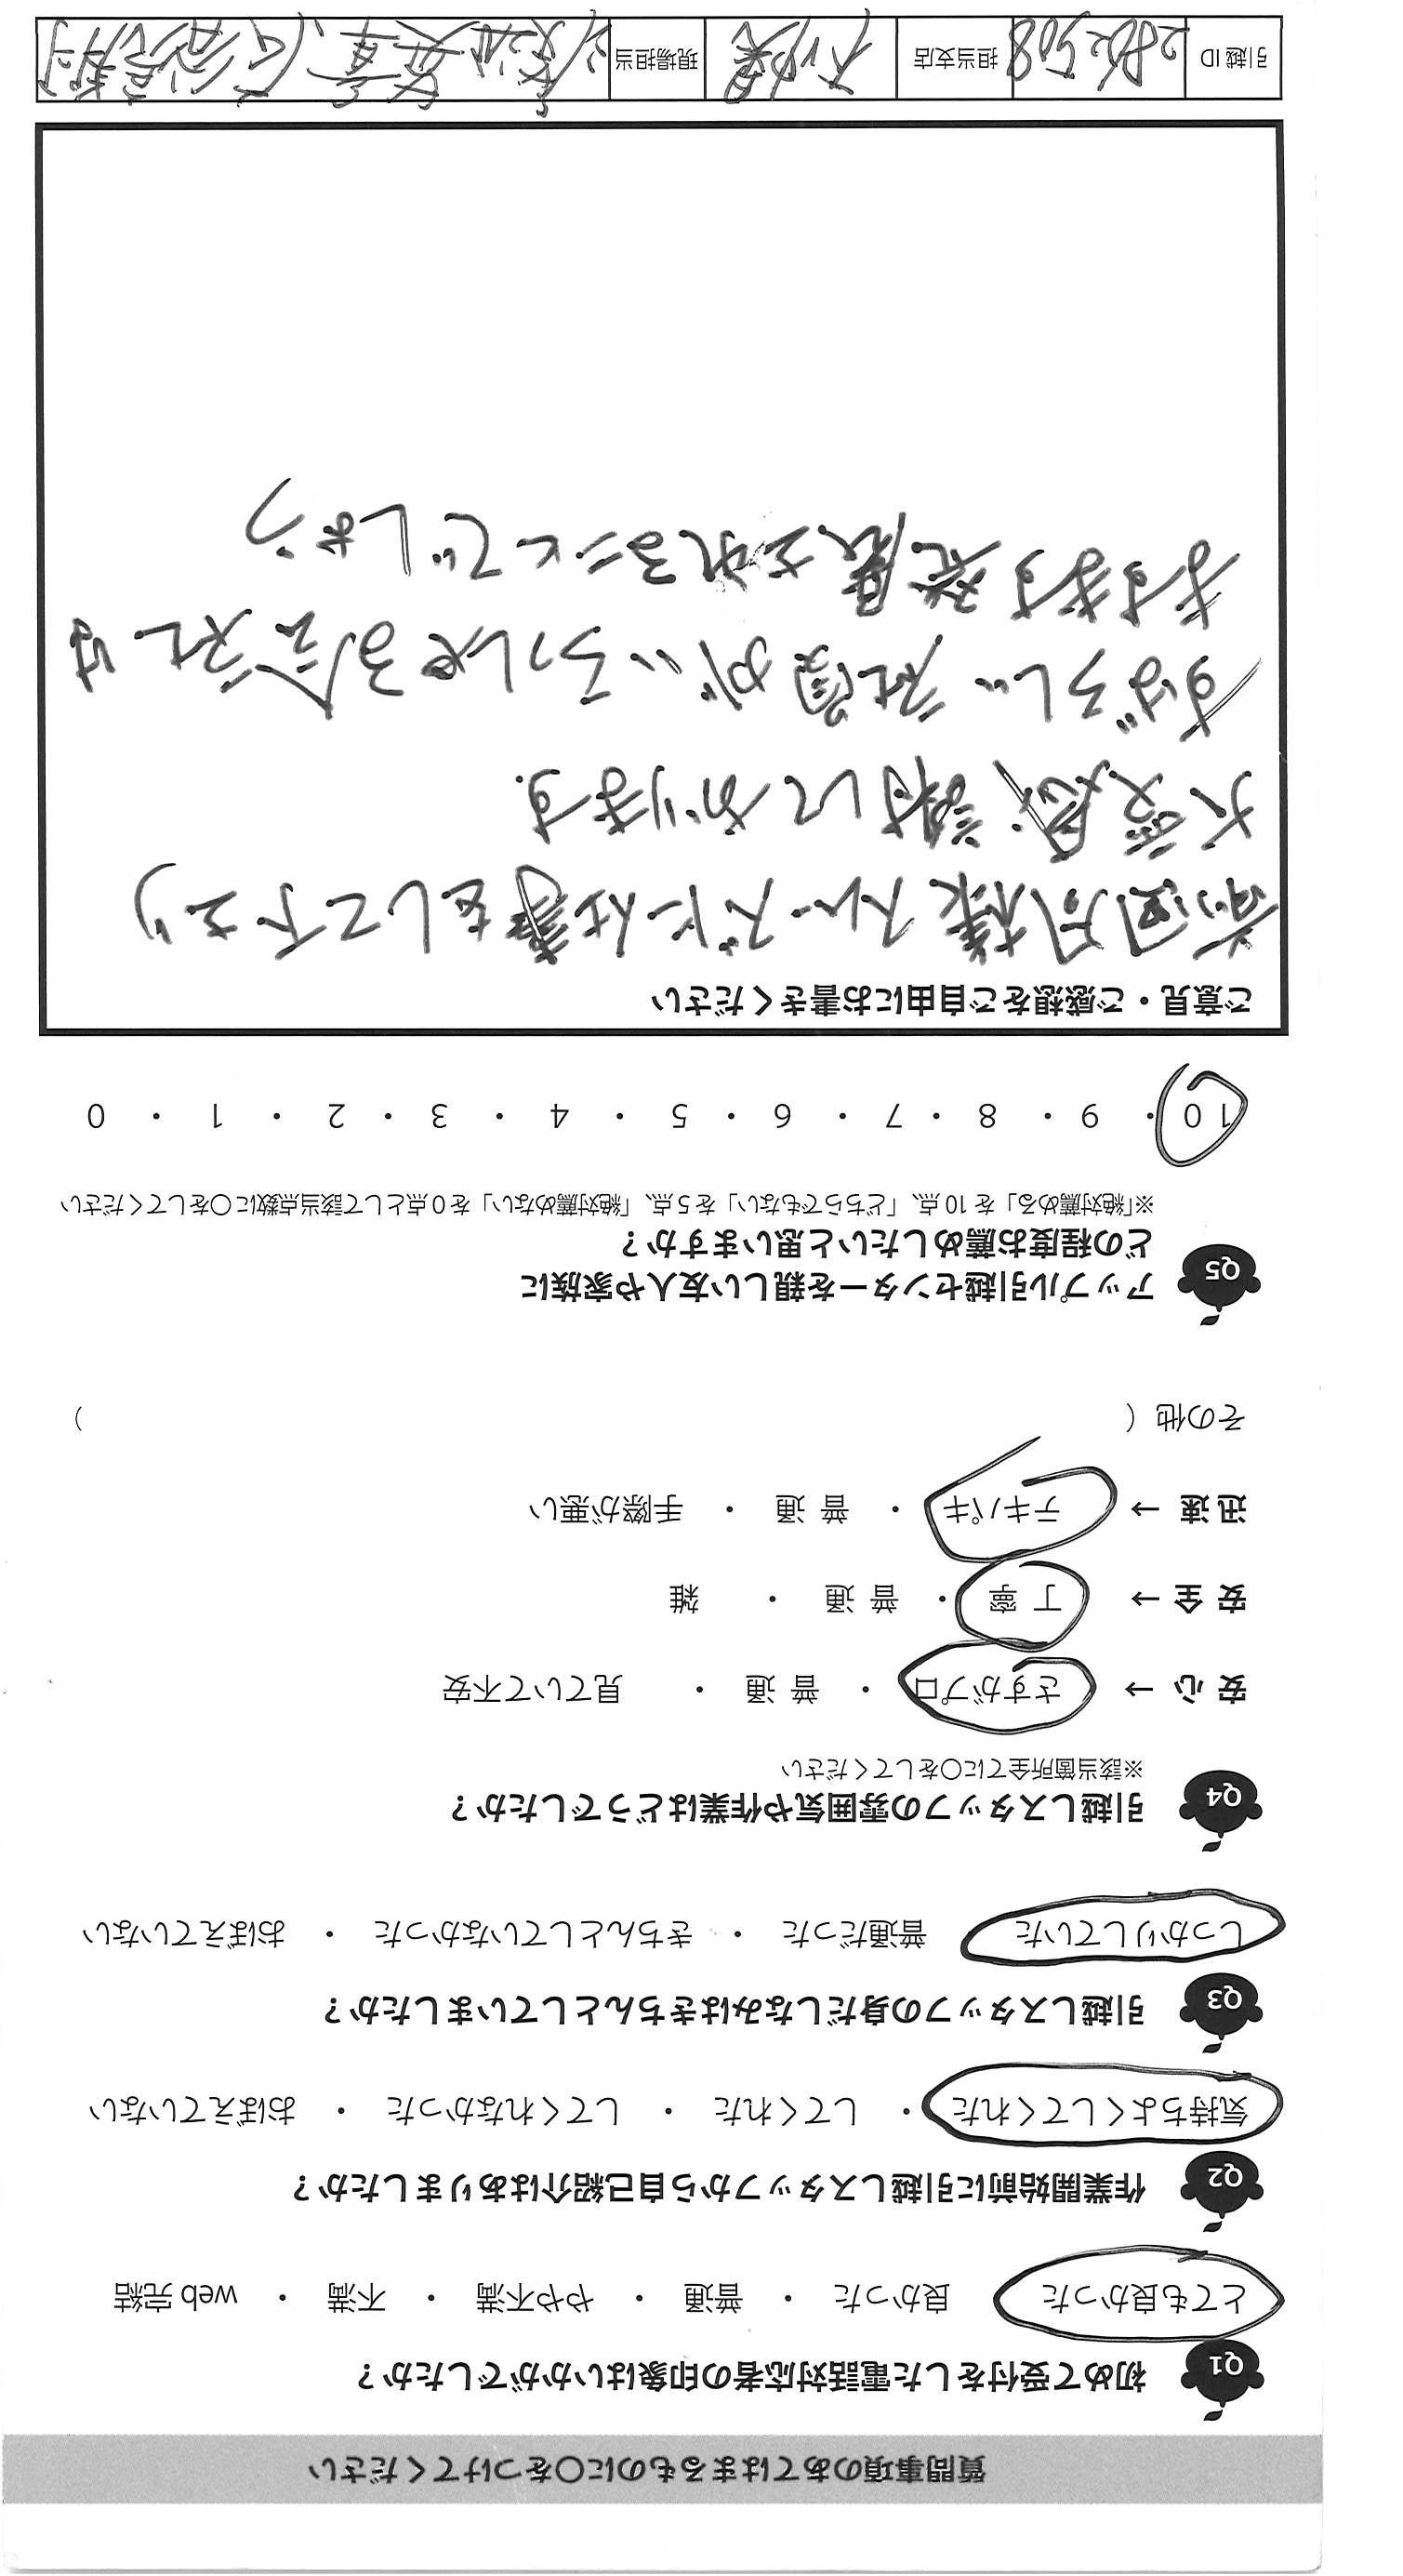 質問事項のあてはまるものに○をつけてください
Q1 初めて受付をした電話対応者の印象はいかがでしたか？
とても良かった ・ 良かった ・ 普通 ・ やや不満 ・ 不満 ・ web 完結
Q2 作業開始前に引越しスタッフから自己紹介はありましたか？
気持ちよくしてくれた ・ してくれた ・ してくれなかった ・ おぼえていない
Q3 引越しスタッフの身だしなみはきちんとしていましたか？
しっかりしていた ・ 普通だった ・ きちんとしていなかった ・ おぼえていない
Q4 引越しスタッフの雰囲気や作業はどうでしたか？
※該当箇所全てに○をしてください
安心 → さすがプロ ・ 普通 ・ 見ていて不安
安全 → 丁寧 ・ 普通 ・ 雑
迅速 → テキパキ ・ 普通 ・ 手際が悪い
その他（ ）
Q5 アップル引越センターを親しい友人や家族に
どの程度お薦めしたいと思いますか？
※「絶対薦める」を 10 点、「どちらでもない」を 5 点、「絶対薦めない」を 0 点として該当点数に○をしてください
10 ・ 9 ・ 8 ・ 7 ・ 6 ・ 5 ・ 4 ・ 3 ・ 2 ・ 1 ・ 0
ご意見・ご感想をご自由にお書きください
前回同様スムーズに仕事をして下さり
大変感謝しております。
すばらしい社員がいらっしゃる会社は
ますます発展されることでしょう
引越 ID 2862508 担当支店 現場担当